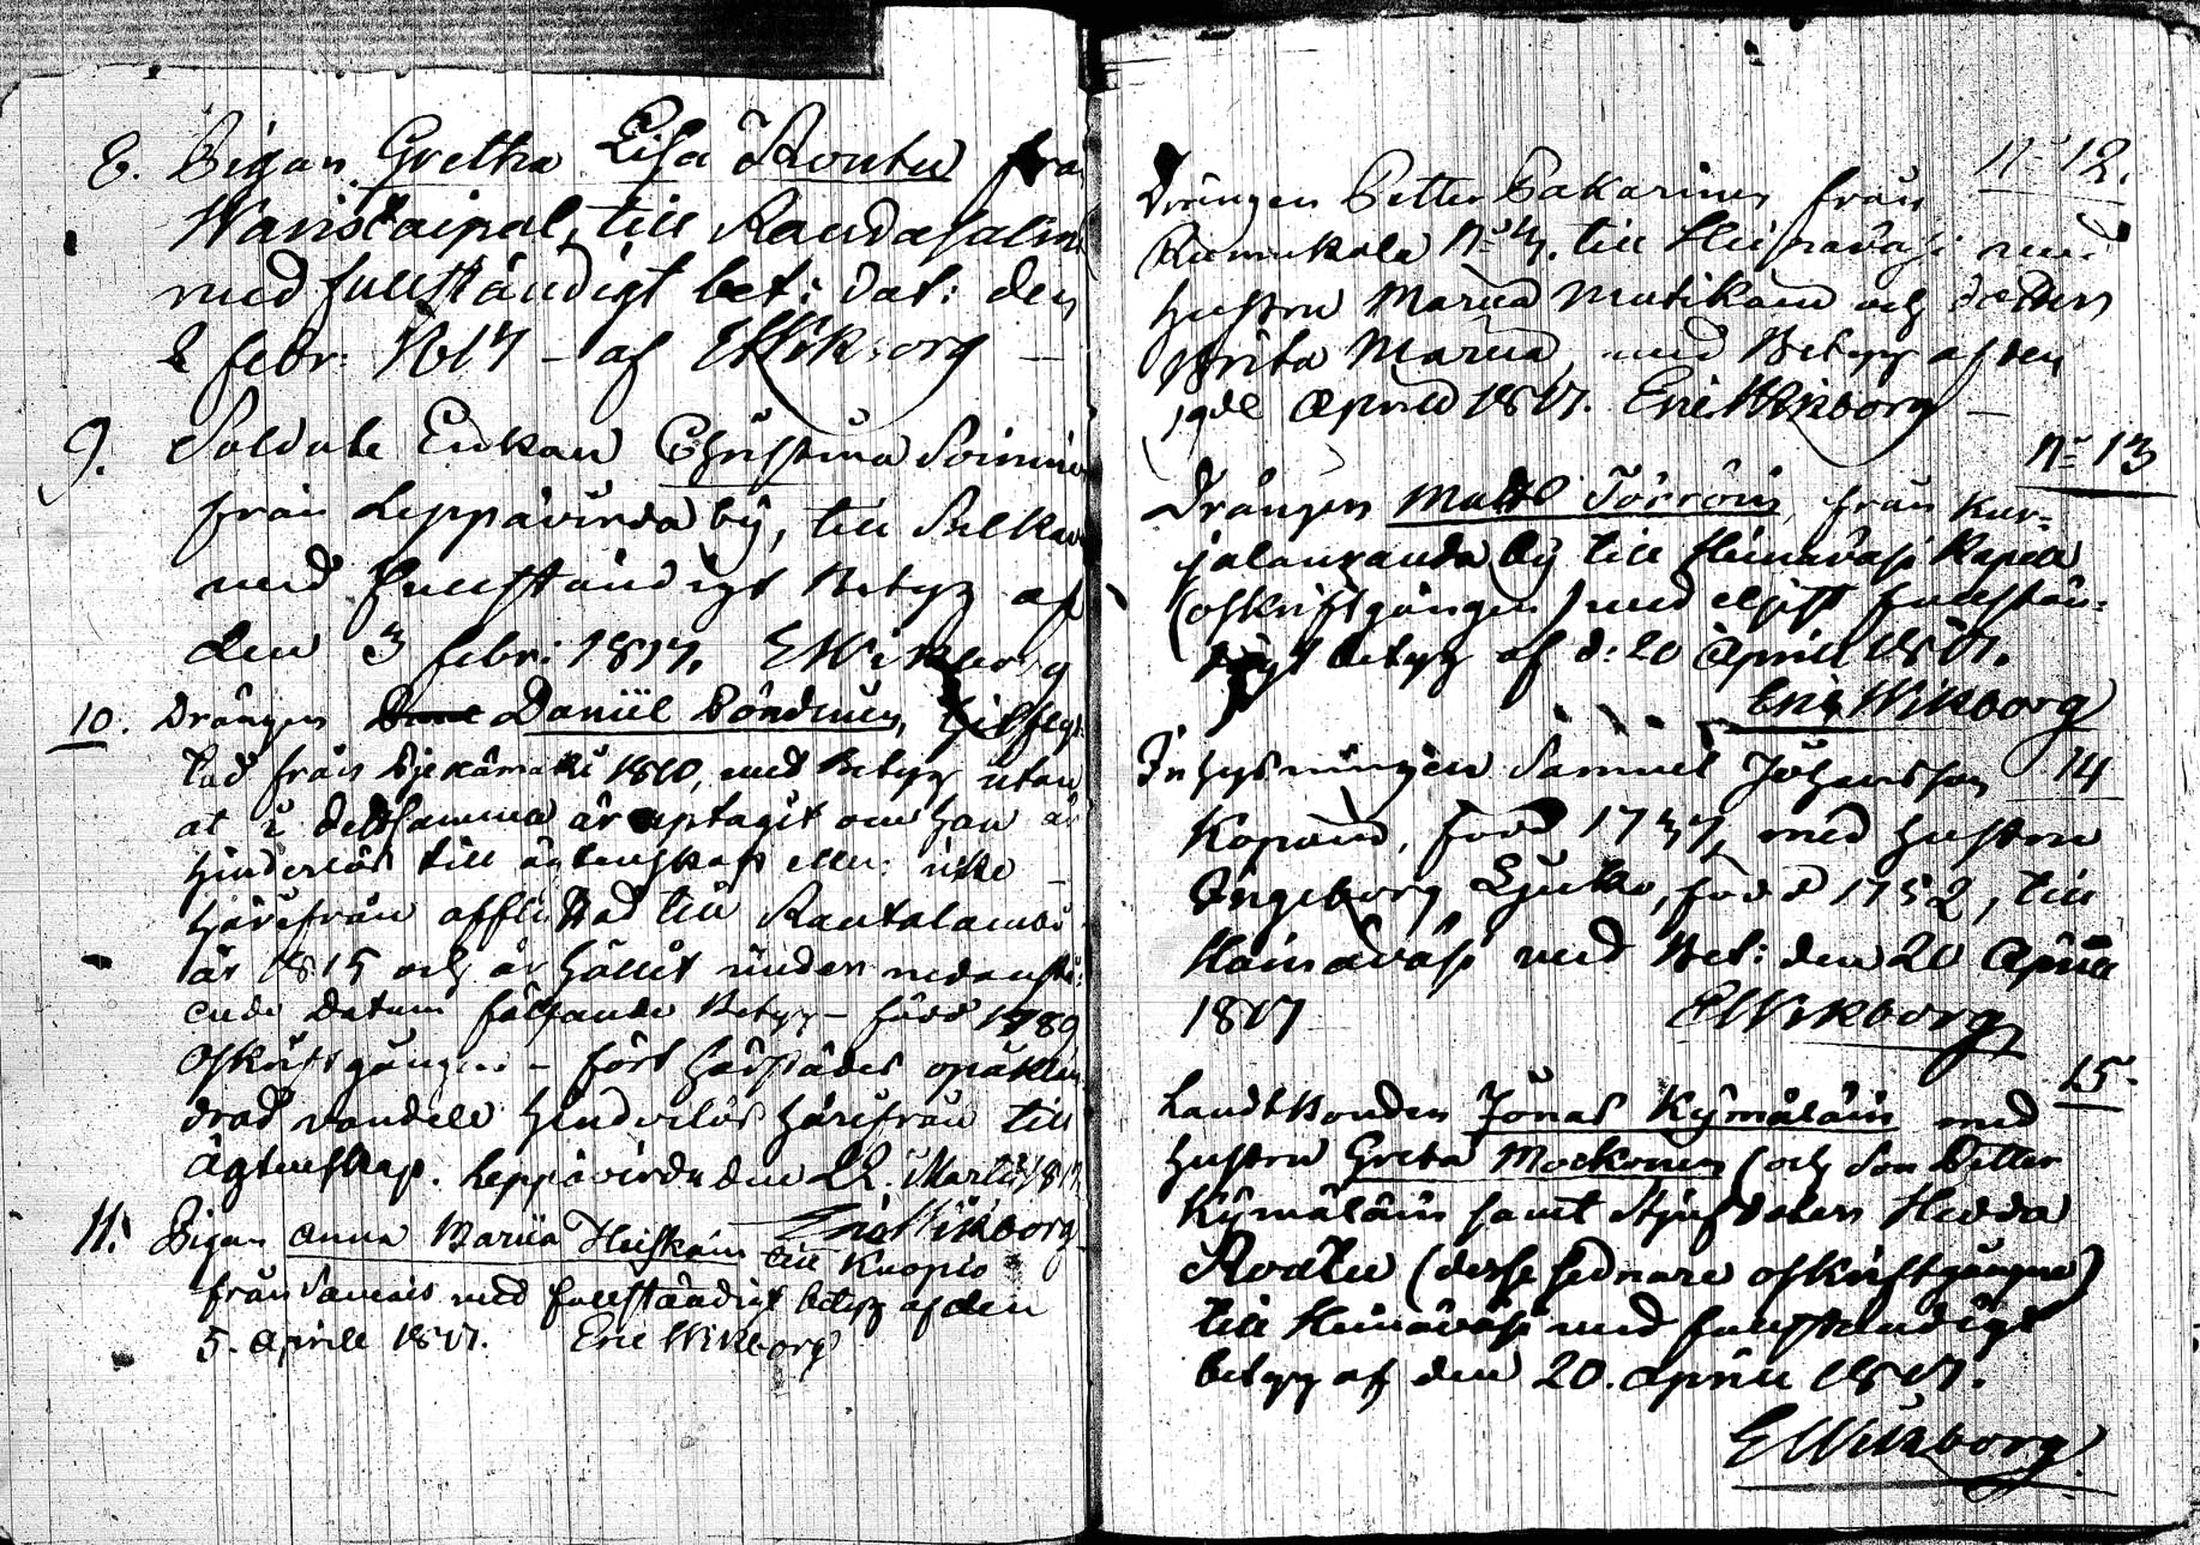 8. Pigan Gretha Lisa Rontu från
till Randasalmi
med fullständigt bet: dat: den
2 febr: 1817 - af EWikborg -
9. Soldats Enkan Christina Soinine
från Leppävirda by, till Sulkava
med fullständigt Betyg af
den 3 febr: 1817. EWikborg
10. Drängen Daniel Pöndinen, hitflyt
tad från 1810, med Betyg utan
at i detsamma är uptagit om han är
hinderlös till ägtenskap eller icke -
härifrån afflyttad till Rautalambi
år 1815 och är hållit under nedanstå:
ende datum följande Betyg - född 1789
Oskriftgången - fört härstädes oparklan
drad vandel hinderlös härifrån till
ägtenskap. Leppävirda den 22. Martii 1817
Eric Wikborg
11. Pigan Anna Maria Heiskain till Kuopio
från Saamais med fullständigt betyg af den
5. Aprill 1817. Eric Wikborg
No 12.
Drängen Petter Pakarinen från
No 4. till Heinäväsi med
hustru Maria Mutikain och dottren
Brita Maria, med Betyg af den
19de April 1817. Eric Wikborg -
No 13
Drängen Matts Törröin, från Kur=
jalanranda by till Heinäväsi Kapell
(oskriftgången) med eljest fullstän:
digt betyg af d: 20 April 1817.
Eric Wikborg
Inhysningen Samuel Johansson 14
Kopoin, född 1747, med hustru
Ingeborg Ljukko, född 1752, till
Heinäväsi med Bet: den 20 April
1817 EWikborg
15.
Landtbonden Jonas Kymäläin med
hustru Greta Mockonen (och Son Petter
Kymäläin samt Styfdotren Hedda
(desse sednare oskriftgångne)
till Heinäväsi med fullständigt
betyg af den 20. April 1817.
EWikborg